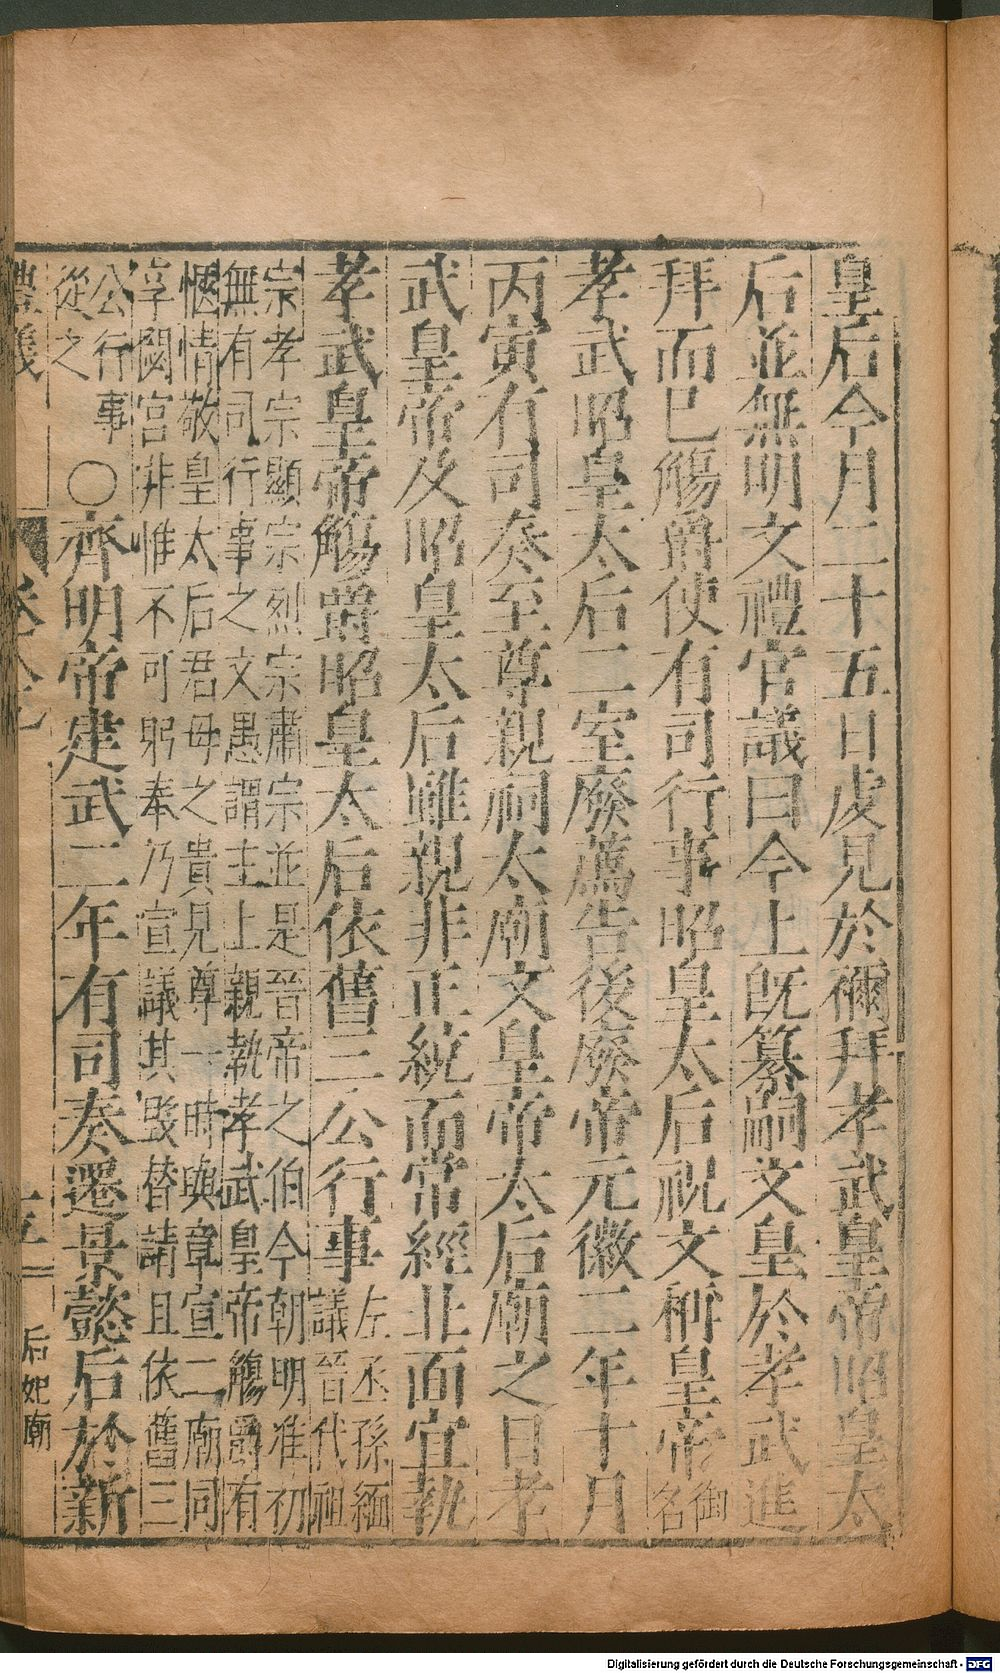 皇后今月二十五日虔見於禰拜孝武皇帝昭皇太
后並無明文禮官議曰今上旣纂嗣文皇於孝武進
拜而已觴爵使有司行事昭皇太后祝文稱皇帝御名
孝武昭皇太后二室廢薦告後廢帝元徽二年十月
丙寅有司奏至尊親祠太廟文皇帝太后廟之日孝
武皇帝及昭皇太后雖親非正統而常經北面宜執
孝武皇帝觴爵昭皇太后依舊三公行事左丞孫緬
議晉代祖
宗孝宗顯宗烈宗肅宗並是晉帝之伯今朝明准初
無有司行事之文愚謂主上親執孝武皇帝觴爵有
愜情敬皇太后君母之貴見尊一時與章宣二廟同
享閟宮非惟不可躬奉乃宣議其毀替請且依舊三
公行事
從之○齊明帝建武二年有司奏遷景懿后於新
后妃廟
Digitalisierung gefördert durch die Deutsche Forschungsgemeinschaft - DFG